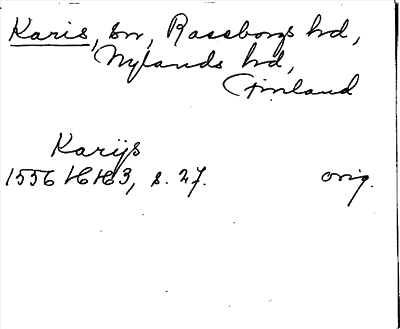 Karis, sn, Rassborgs hd,
Nylands hd,
Finland
Karijs
1556 16163, s. 27. orig.